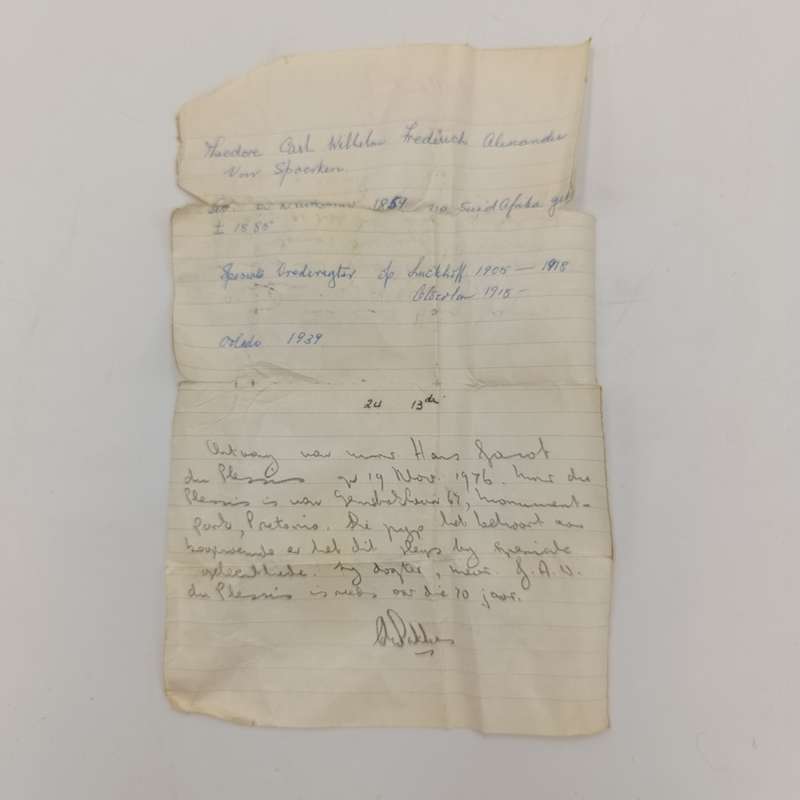 Theodore Carl Wilhelm Frederick Alexander
Von Spoerken.
Geb. 1854 na Suid Afrika ge
± 1885
Spesiale Vrederegter op Luckhoff 1905 — 1918
1918 -
Oorlede 1939
24 13de
Ontvang van mnr Hans Jacob
du Plessis op 19 Nov. 1976. Mnr du
Plessis is van 67, Monument-
park, Pretoria. Die pyp het behoort aan
en het dit by spesiale
geleenthede. Sy dogter, mevr. J.A.V.
du Plessis is reeds oor die 70 jaar.